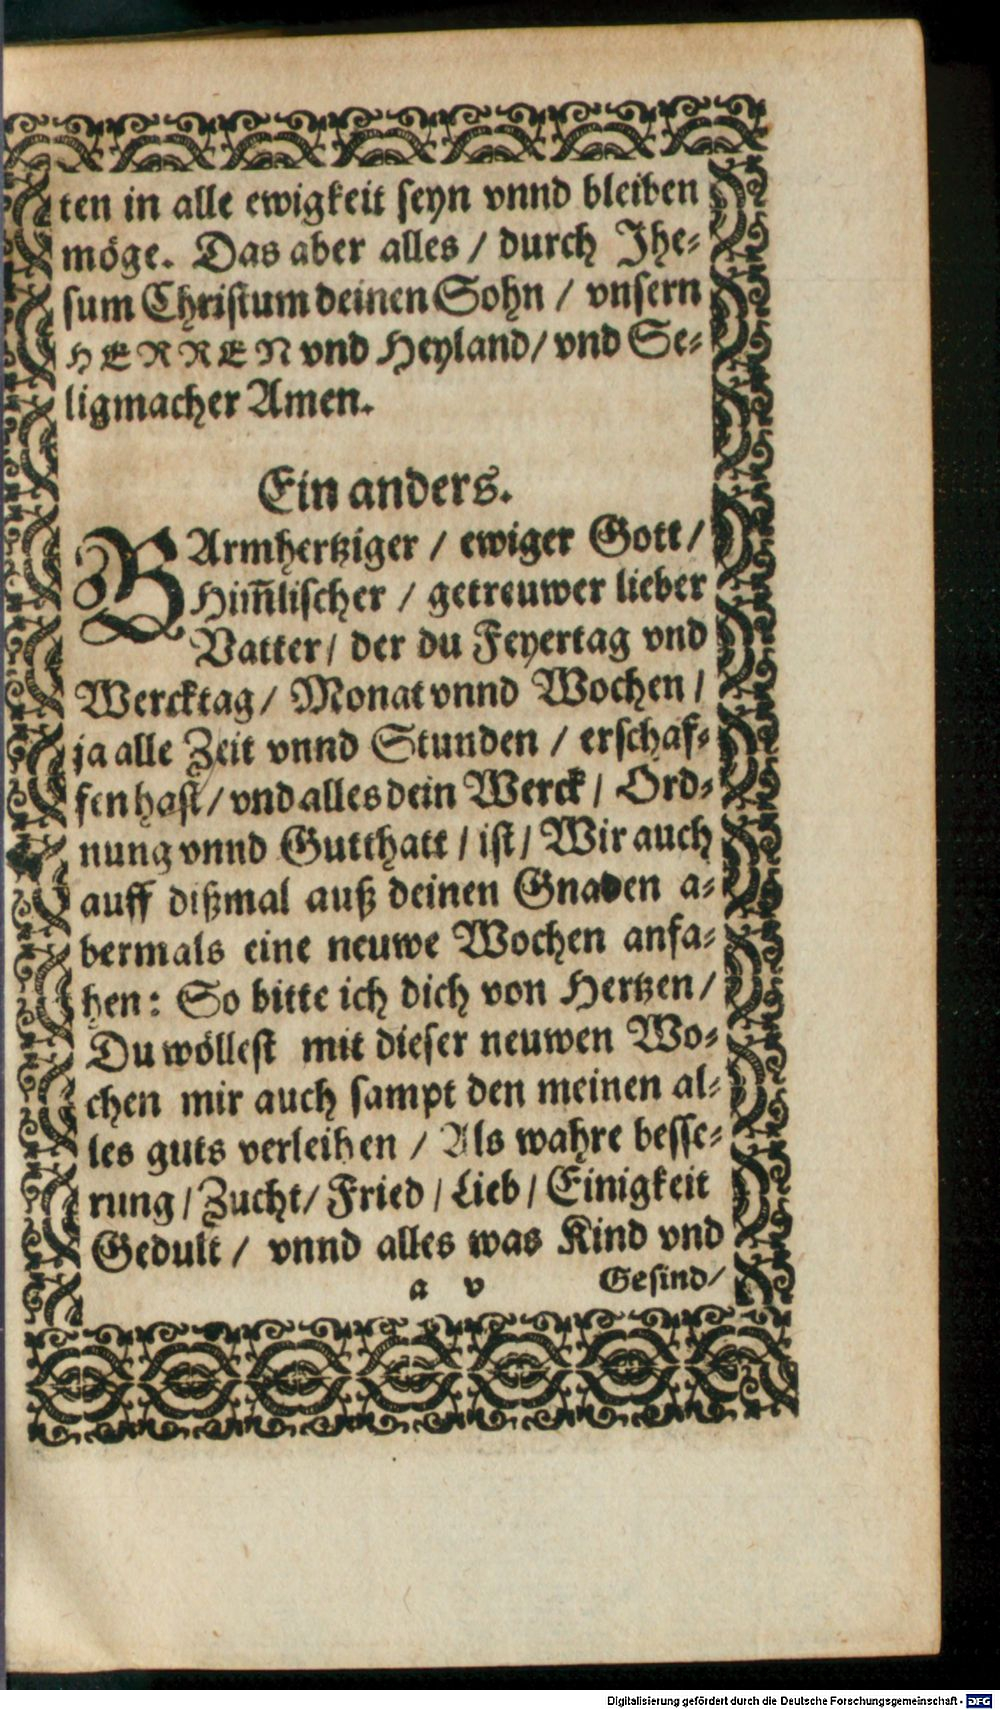 ten in alle ewigkeit seyn vnnd bleiben
möge. Das aber alles / durch Jhe-
sum Christum deinen Sohn / vnsern
HERREN vnd Heyland / vnd Se-
ligmacher Amen.
Ein anders.
BArmhertziger / ewiger Gott /
Him̄lischer / getreuwer lieber
Vatter / der du Feyertag vnd
Wercktag / Monat vnnd Wochen /
ja alle Zeit vnnd Stunden / erschaf-
fen hast / vnd alles dein Werck / Ord-
nung vnnd Gutthatt / ist / Wir auch
auff dißmal auß deinen Gnaden a-
bermals eine neuwe Wochen anfa-
hen: So bitte ich dich von Hertzen /
Du wöllest mit dieser neuwen Wo-
chen mir auch sampt den meinen al-
les guts verleihen / Als wahre besse-
rung / Zucht / Fried / Lieb / Einigkeit
Gedult / vnnd alles was Kind vnd
a v Gesind /
Digitalisierung gefördert durch die Deutsche Forschungsgemeinschaft - DFG